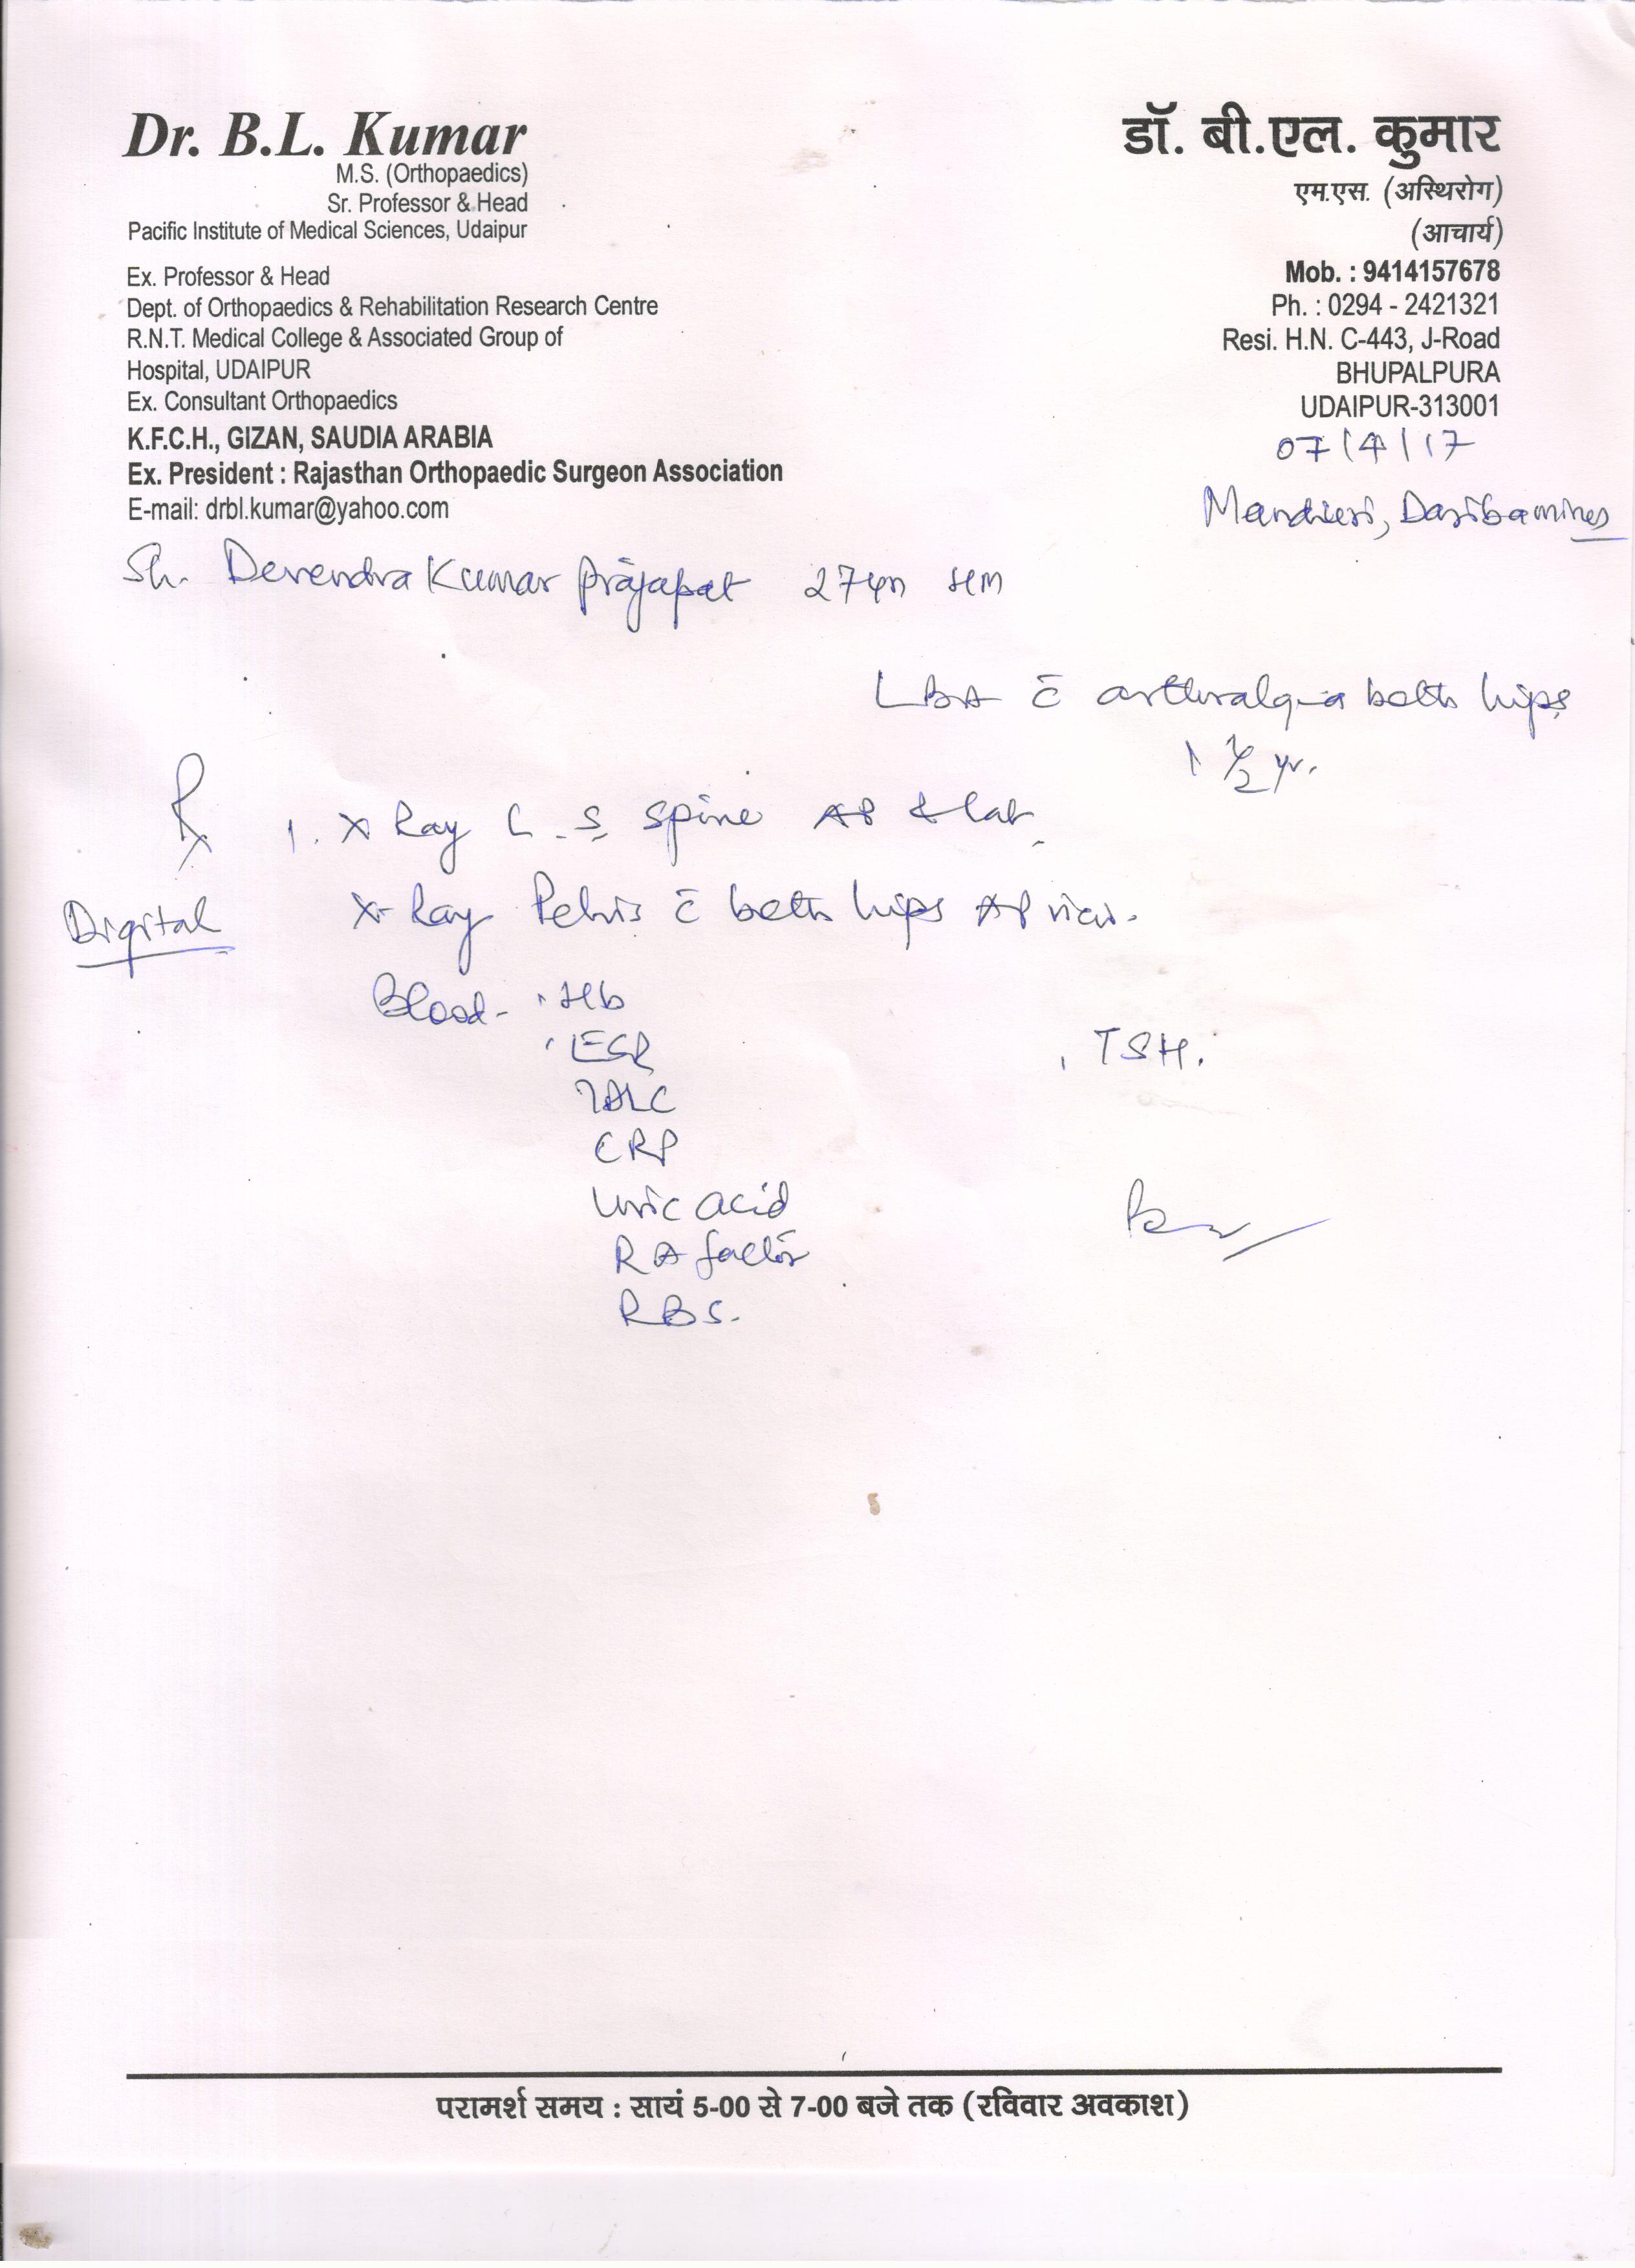 Dr. B.L. Kumar
M.S. (Orthopaedics)
Sr. Professor & Head
Pacific Institute of Medical Sciences, Udaipur
Ex. Professor & Head
Dept. of Orthopaedics & Rehabilitation Research Centre
R.N.T. Medical College & Associated Group of
Hospital, UDAIPUR
Ex. Consultant Orthopaedics
K.F.C.H., GIZAN, SAUDIA ARABIA
Ex. President : Rajasthan Orthopaedic Surgeon Association
E-mail: drbl.kumar@yahoo.com
डॉ. बी.एल. कुमार
एम.एस. (अस्थिरोग)
(आचार्य)
Mob. : 9414157678
Ph. : 0294 - 2421321
Resi. H.N. C-443, J-Road
BHUPALPURA
UDAIPUR-313001
07/4/17
Dariba mines
Sh. Devendra Kumar Prajapat 27yrs HM
LBA c̄ arthralgia both hips
1 1/2 yr.
Rx 1. X Ray L.S. Spine AP & Lat.
Digital X-Ray Pelvis c̄ both hips AP view.
Blood - Hb
ESR
TSH.
TDLC
CRP
Uric acid
RA factor
RBS.
परामर्श समय : सायं 5-00 से 7-00 बजे तक (रविवार अवकाश)